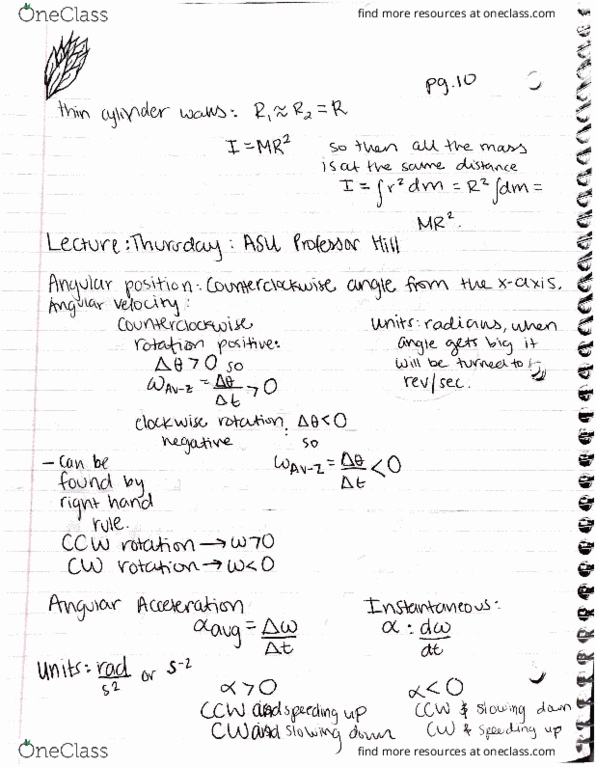 OneClass
find more resources at oneclass.com
pg.10
thin cylinder walls: R₁≈R₂=R
I=MR²
so then all the mass
is at the same distance
I=∫r²dm = R²∫dm =
MR².
Lecture: Thursday: ASU Professor Hill
Angular position: Counterclockwise angle from the x-axis.
Angular velocity:
Counterclockwise
rotation positive:
Δθ>0 so
ω_AV-Z = Δθ/Δt >0
units: radians, when
angle gets big it
will be turned to
rev/sec.
clockwise rotation: Δθ<0
negative so
ω_AV-Z = Δθ/Δt <0
– Can be
found by
right hand
rule.
CCW rotation → ω>0
CW rotation → ω<0
Angular Acceleration
α_avg = Δω/Δt
Instantaneous:
α : dω/dt
Units: rad/s² or s⁻²
α>0
CCW and speeding up
CW and slowing down
α<0
CCW & slowing down
CW & speeding up
OneClass
find more resources at oneclass.com